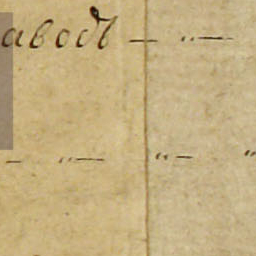 аводѣ — „ —
— „ — „ — „